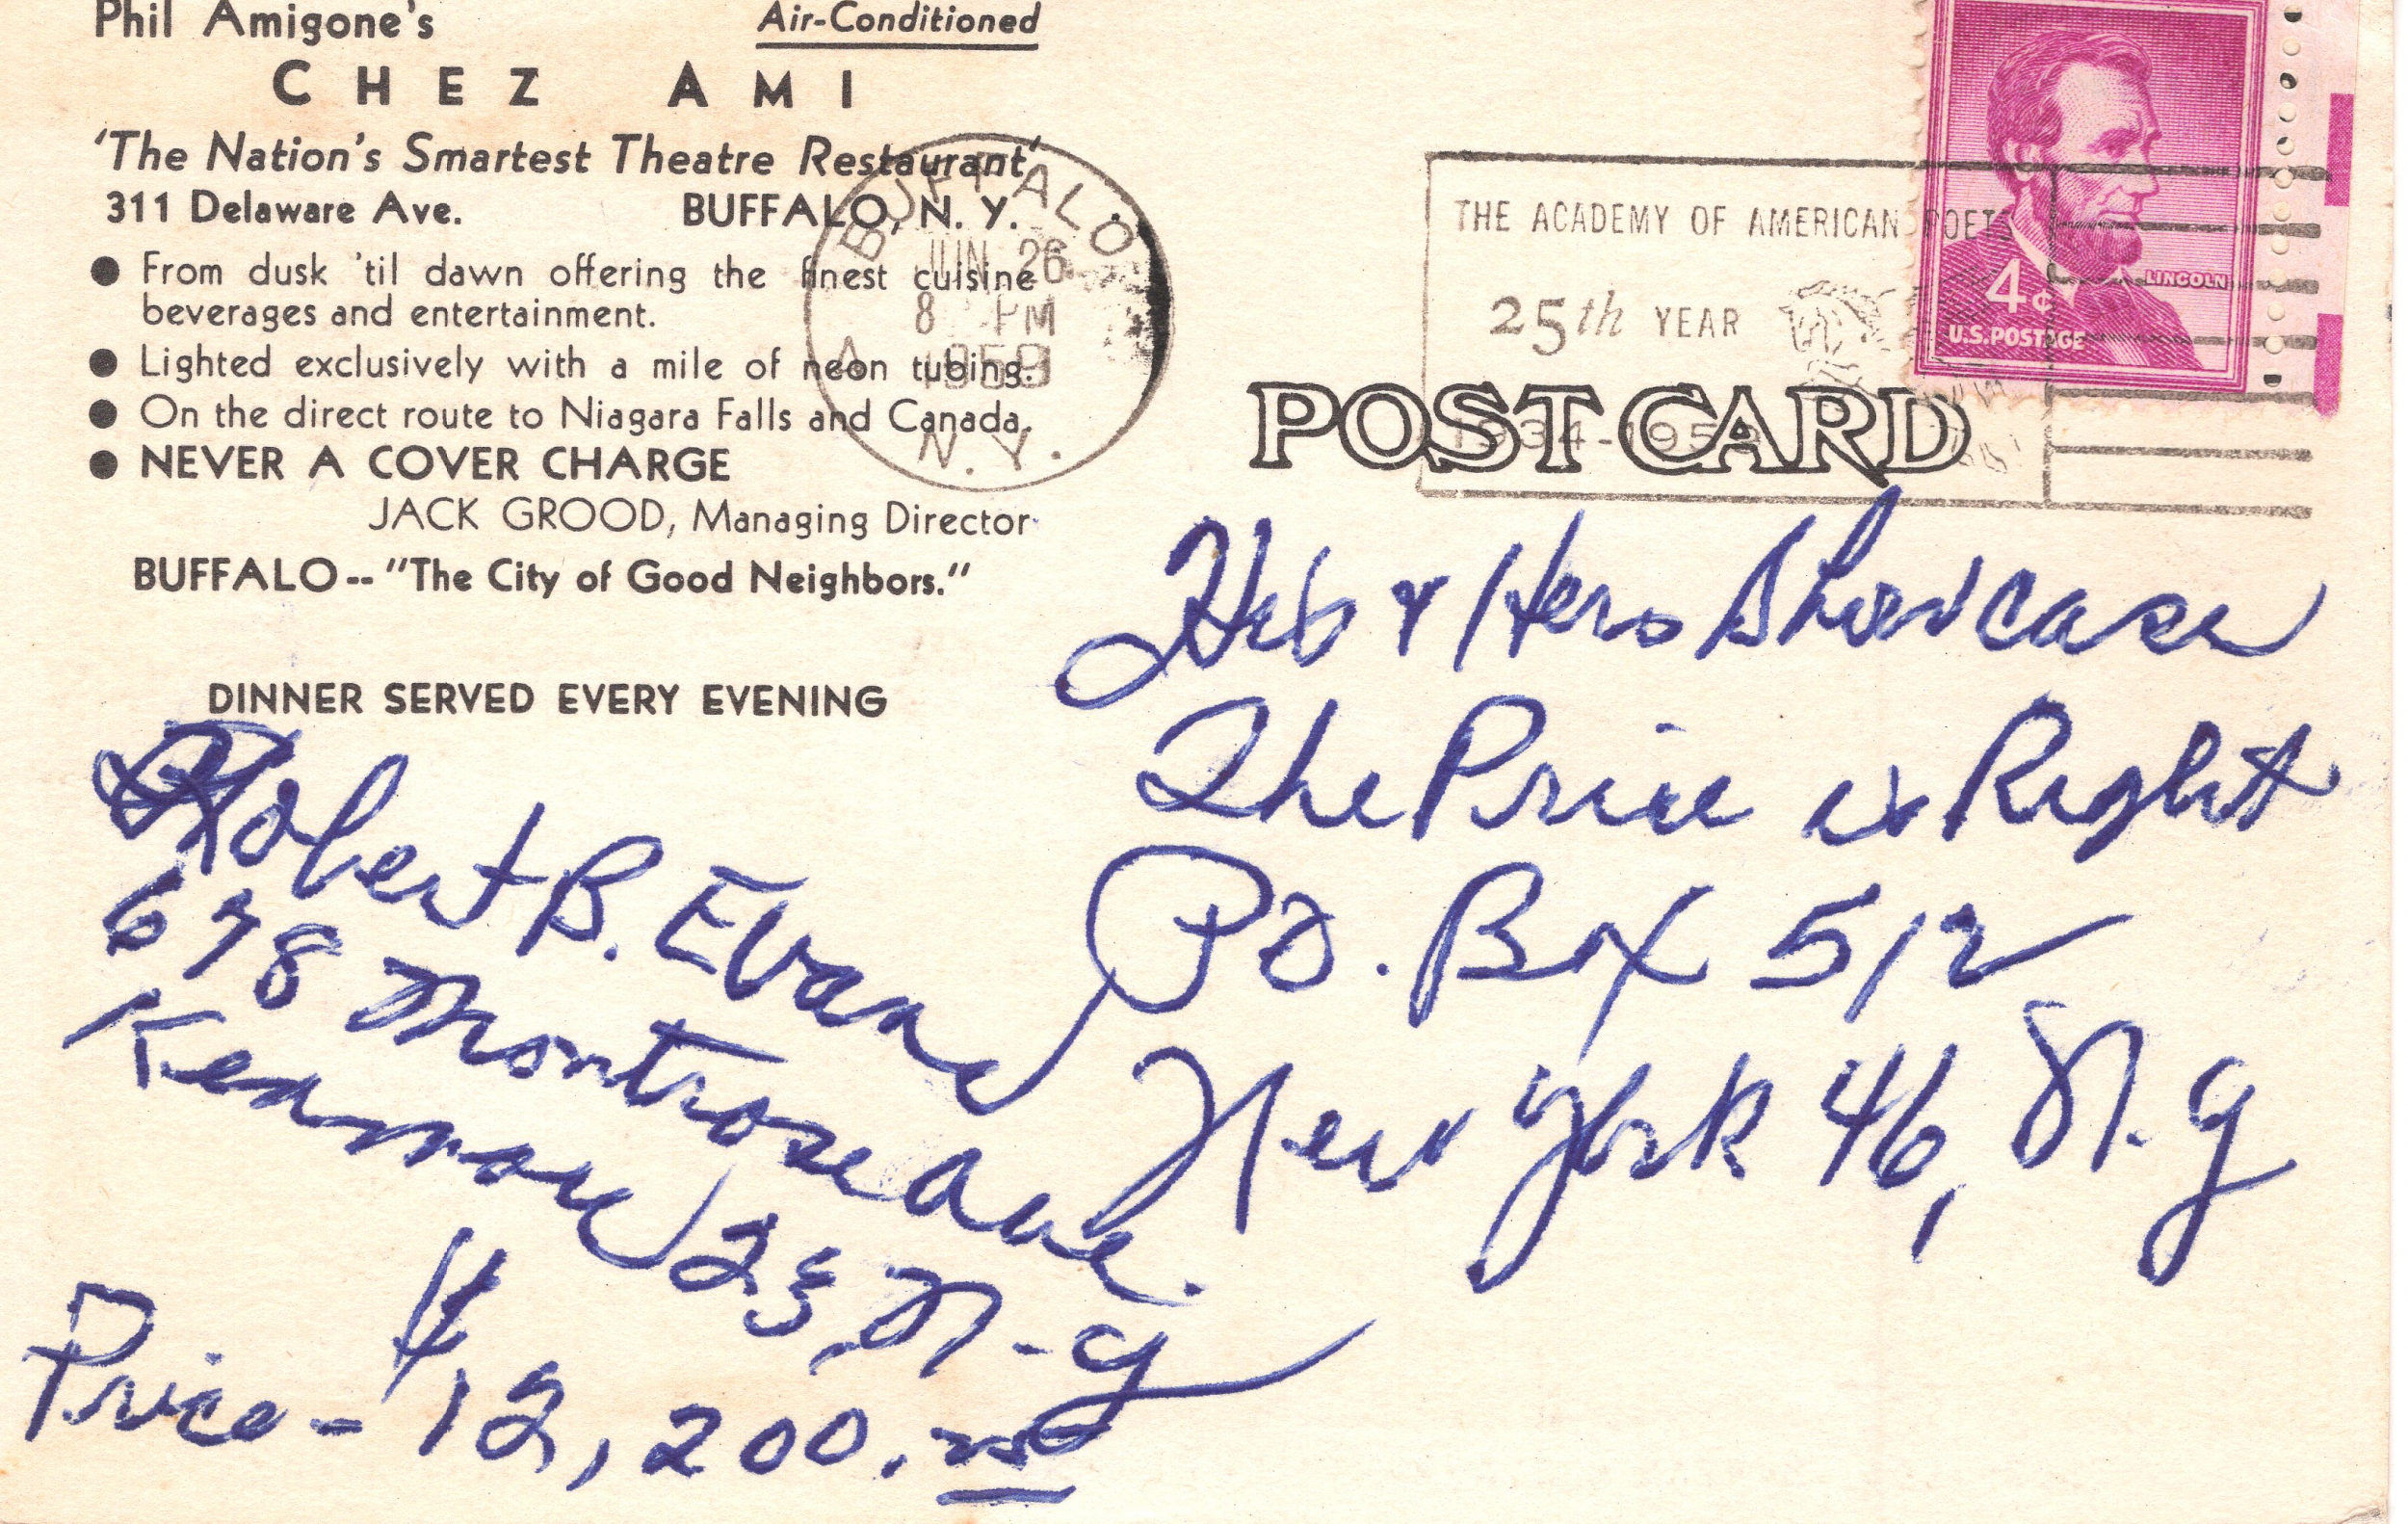 Phil Amigone's Air-Conditioned
CHEZ AMI
'The Nation's Smartest Theatre Restaurant'
311 Delaware Ave. BUFFALO, N. Y.
● From dusk 'til dawn offering the finest cuisine
beverages and entertainment.
● Lighted exclusively with a mile of neon tubing.
● On the direct route to Niagara Falls and Canada.
● NEVER A COVER CHARGE
JACK GROOD, Managing Director
BUFFALO -- "The City of Good Neighbors."
DINNER SERVED EVERY EVENING
Robert B. Evans
678 Montrose Ave.
Kenmore 23, N.Y
Price - $12,200.
BUFFALO
JUN 26
8 PM
1959
N.Y.
THE ACADEMY OF AMERICAN POETS
25th YEAR
1934-1959
LINCOLN
4¢
U.S. POSTAGE
POST CARD
& Hers Showcase
The Price is Right
P.O. Box 512
New York 46, N.Y